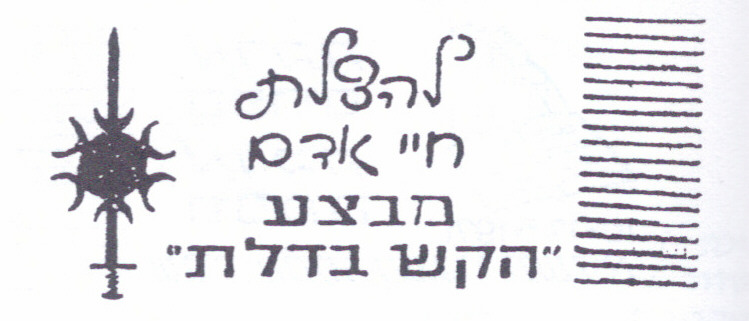 להצלת
חיי אדם
מבצע
"הקש בדלת"